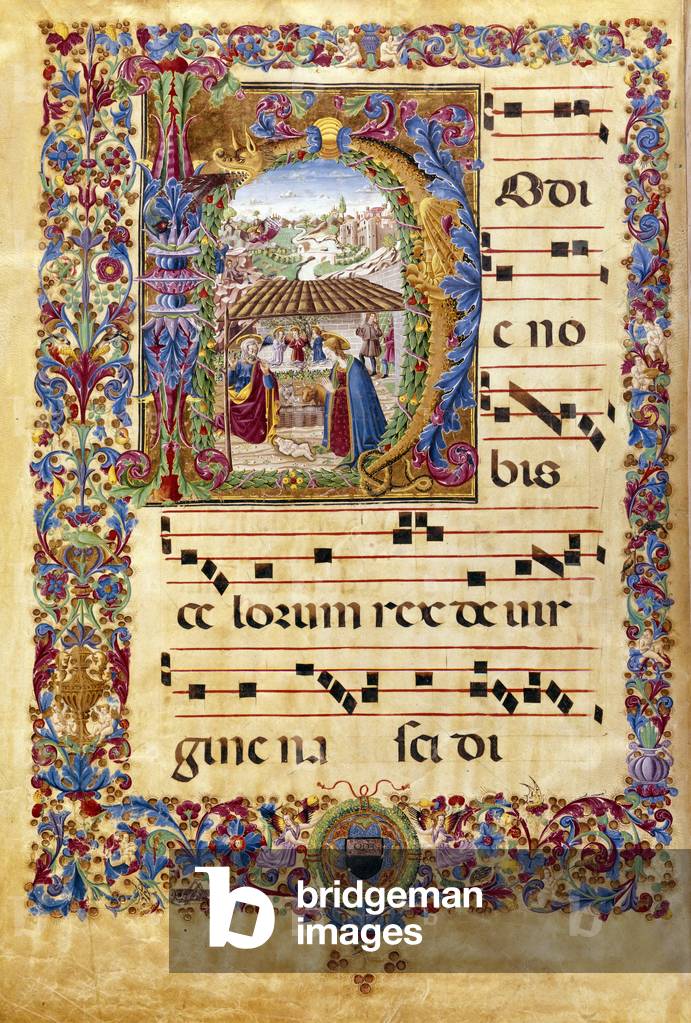 HOdi
e no
bis
ce lorum rex de uir
gine na sci di
b bridgeman
images